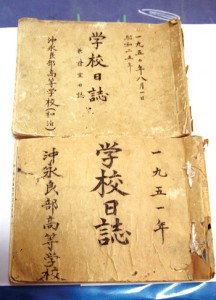 一九五〇年八月一日
昭和二五年
学校日誌
沖永良部高等学校(和泊)
一九五一年
学校日誌
沖永良部高等学校